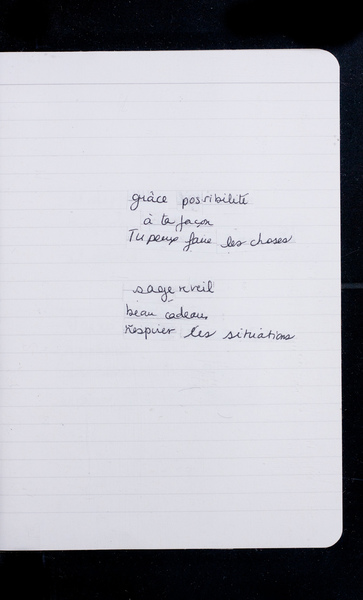 grâce possibilité
à ta façon
Tu peux faire les choses
sage réveil
beau cadeau
Respirer les situations